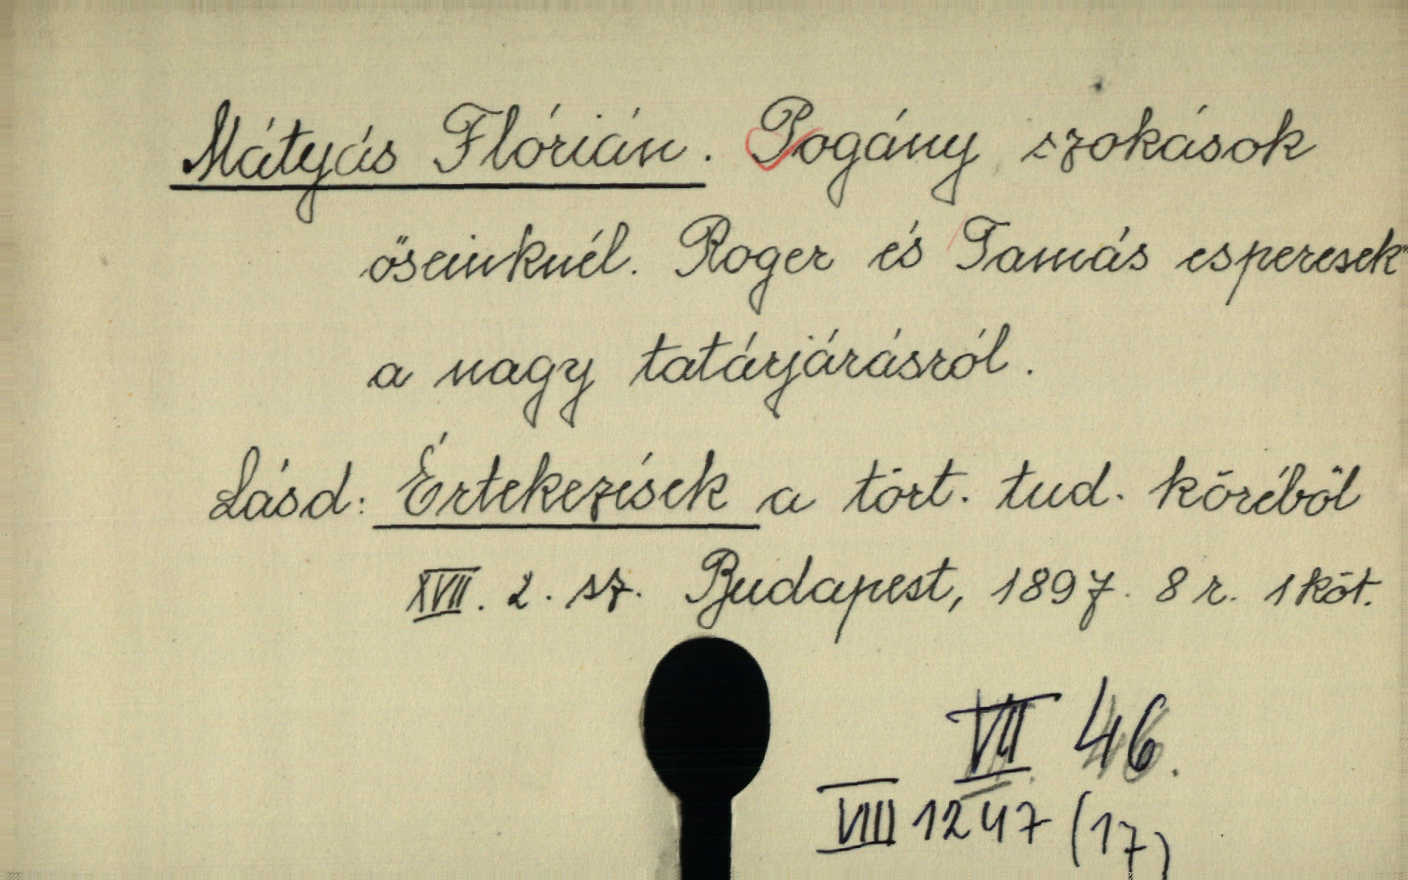 Mátyás Flórián. Pogány szokások
őseinknél. Roger és Tamás esperesek
a nagy tatárjárásról.
Lásd: Értekezések a tört. tud. köréből
XVII. 2. sz. Budapest, 1897. 8 r. 1 köt.
VII 46.
VIII 1247 (17)